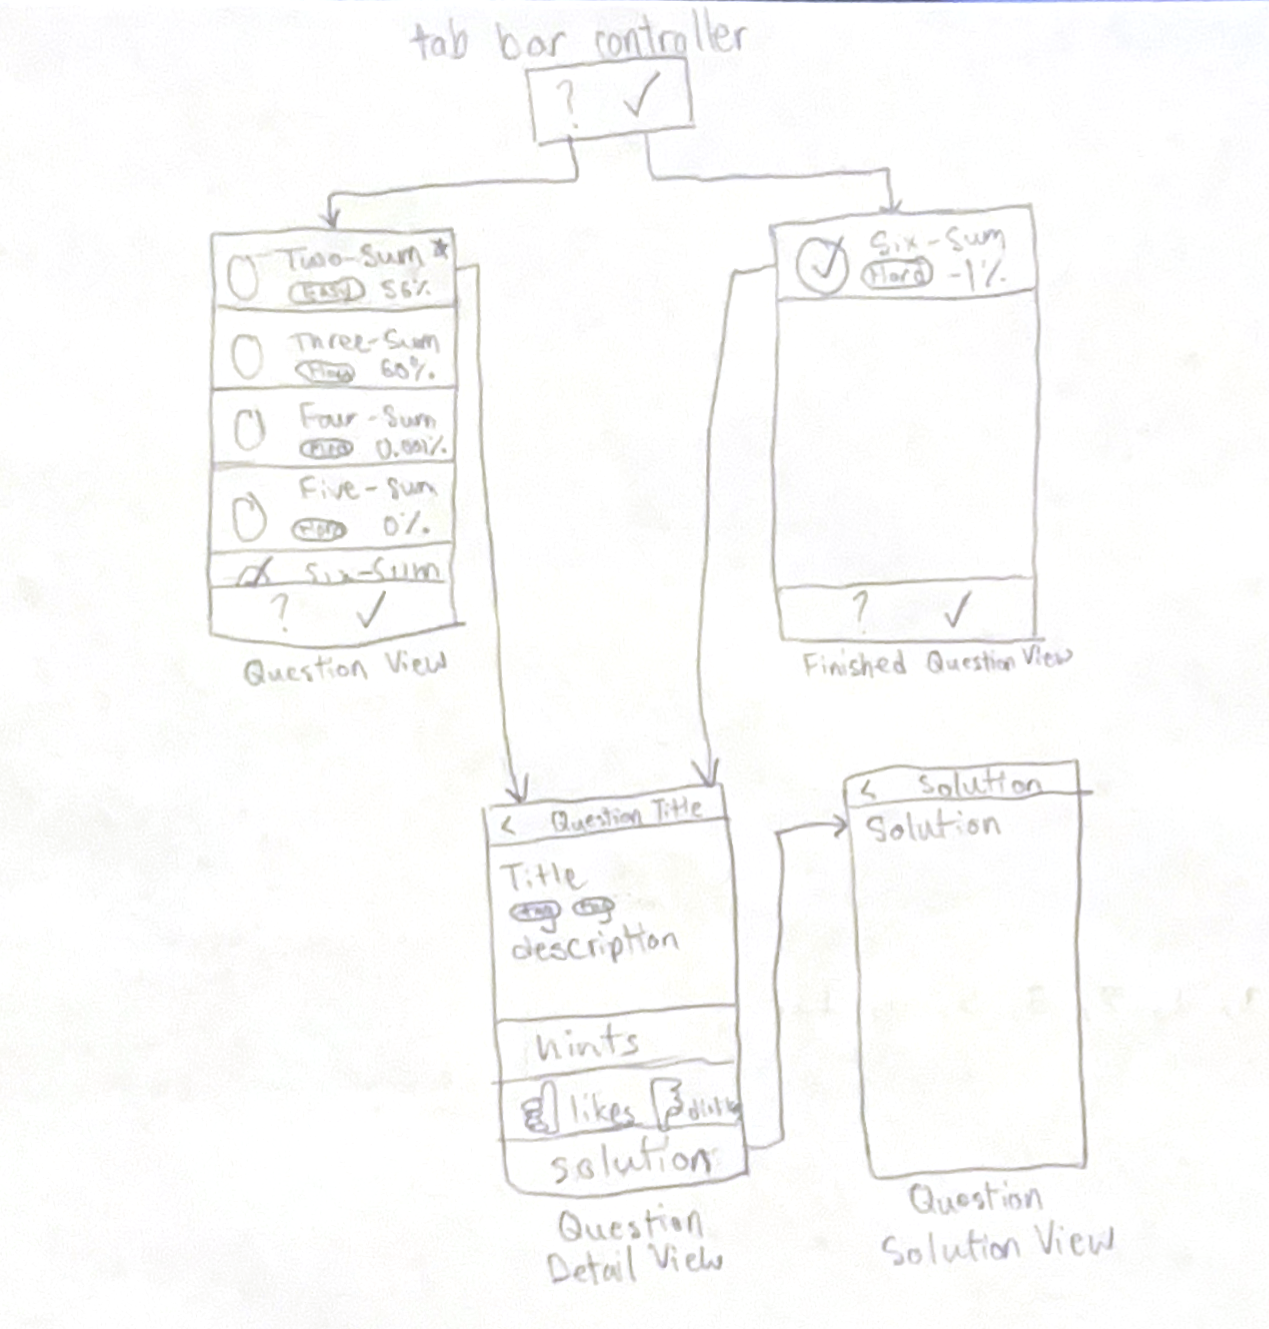 tab bar controller
? ✓
Two-Sum ★
Easy 56%
Three-Sum
Hard 60%
Four-Sum
Hard 0.001%
Five-Sum
Hard 0%
Six-Sum
? ✓
Question View
Six-Sum
Hard -1%
? ✓
Finished Question View
< Question Title
Title
tag tag
description
hints
likes
solution
Question
Detail View
< Solution
Solution
Question
Solution View